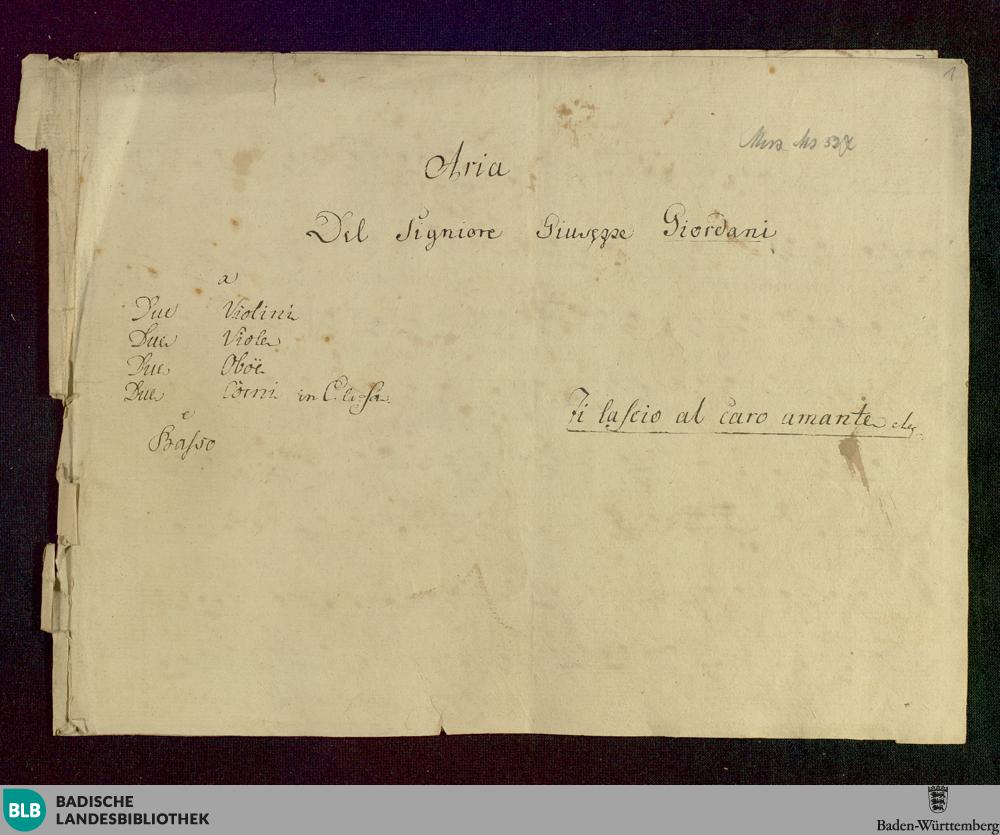 1
Mus. Ms 537
Aria
Del Signiore Giuseppe Giordani
a
Due Violini
Due Viole
Due Oboe
Due Corni in C. la fa.
e
Basso
Ti lascio al caro amante
BLB BADISCHE
LANDESBIBLIOTHEK
Baden-Württemberg